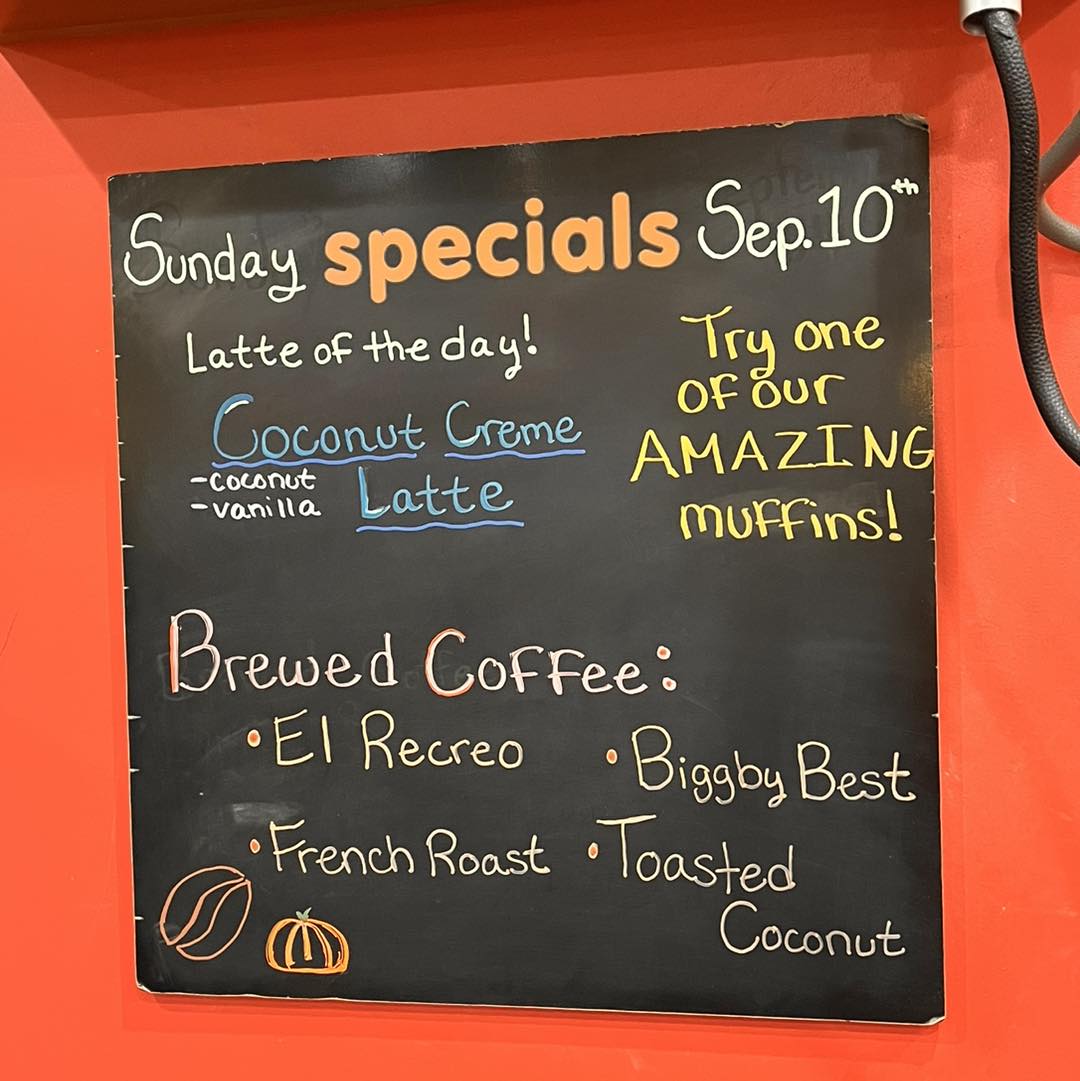 Sunday specials Sep. 10th
Latte of the day!
Coconut Creme
-coconut
-vanilla
Latte
Try one
of our
AMAZING
muffins!
Brewed Coffee:
• El Recreo
• Biggby Best
• French Roast
• Toasted
Coconut